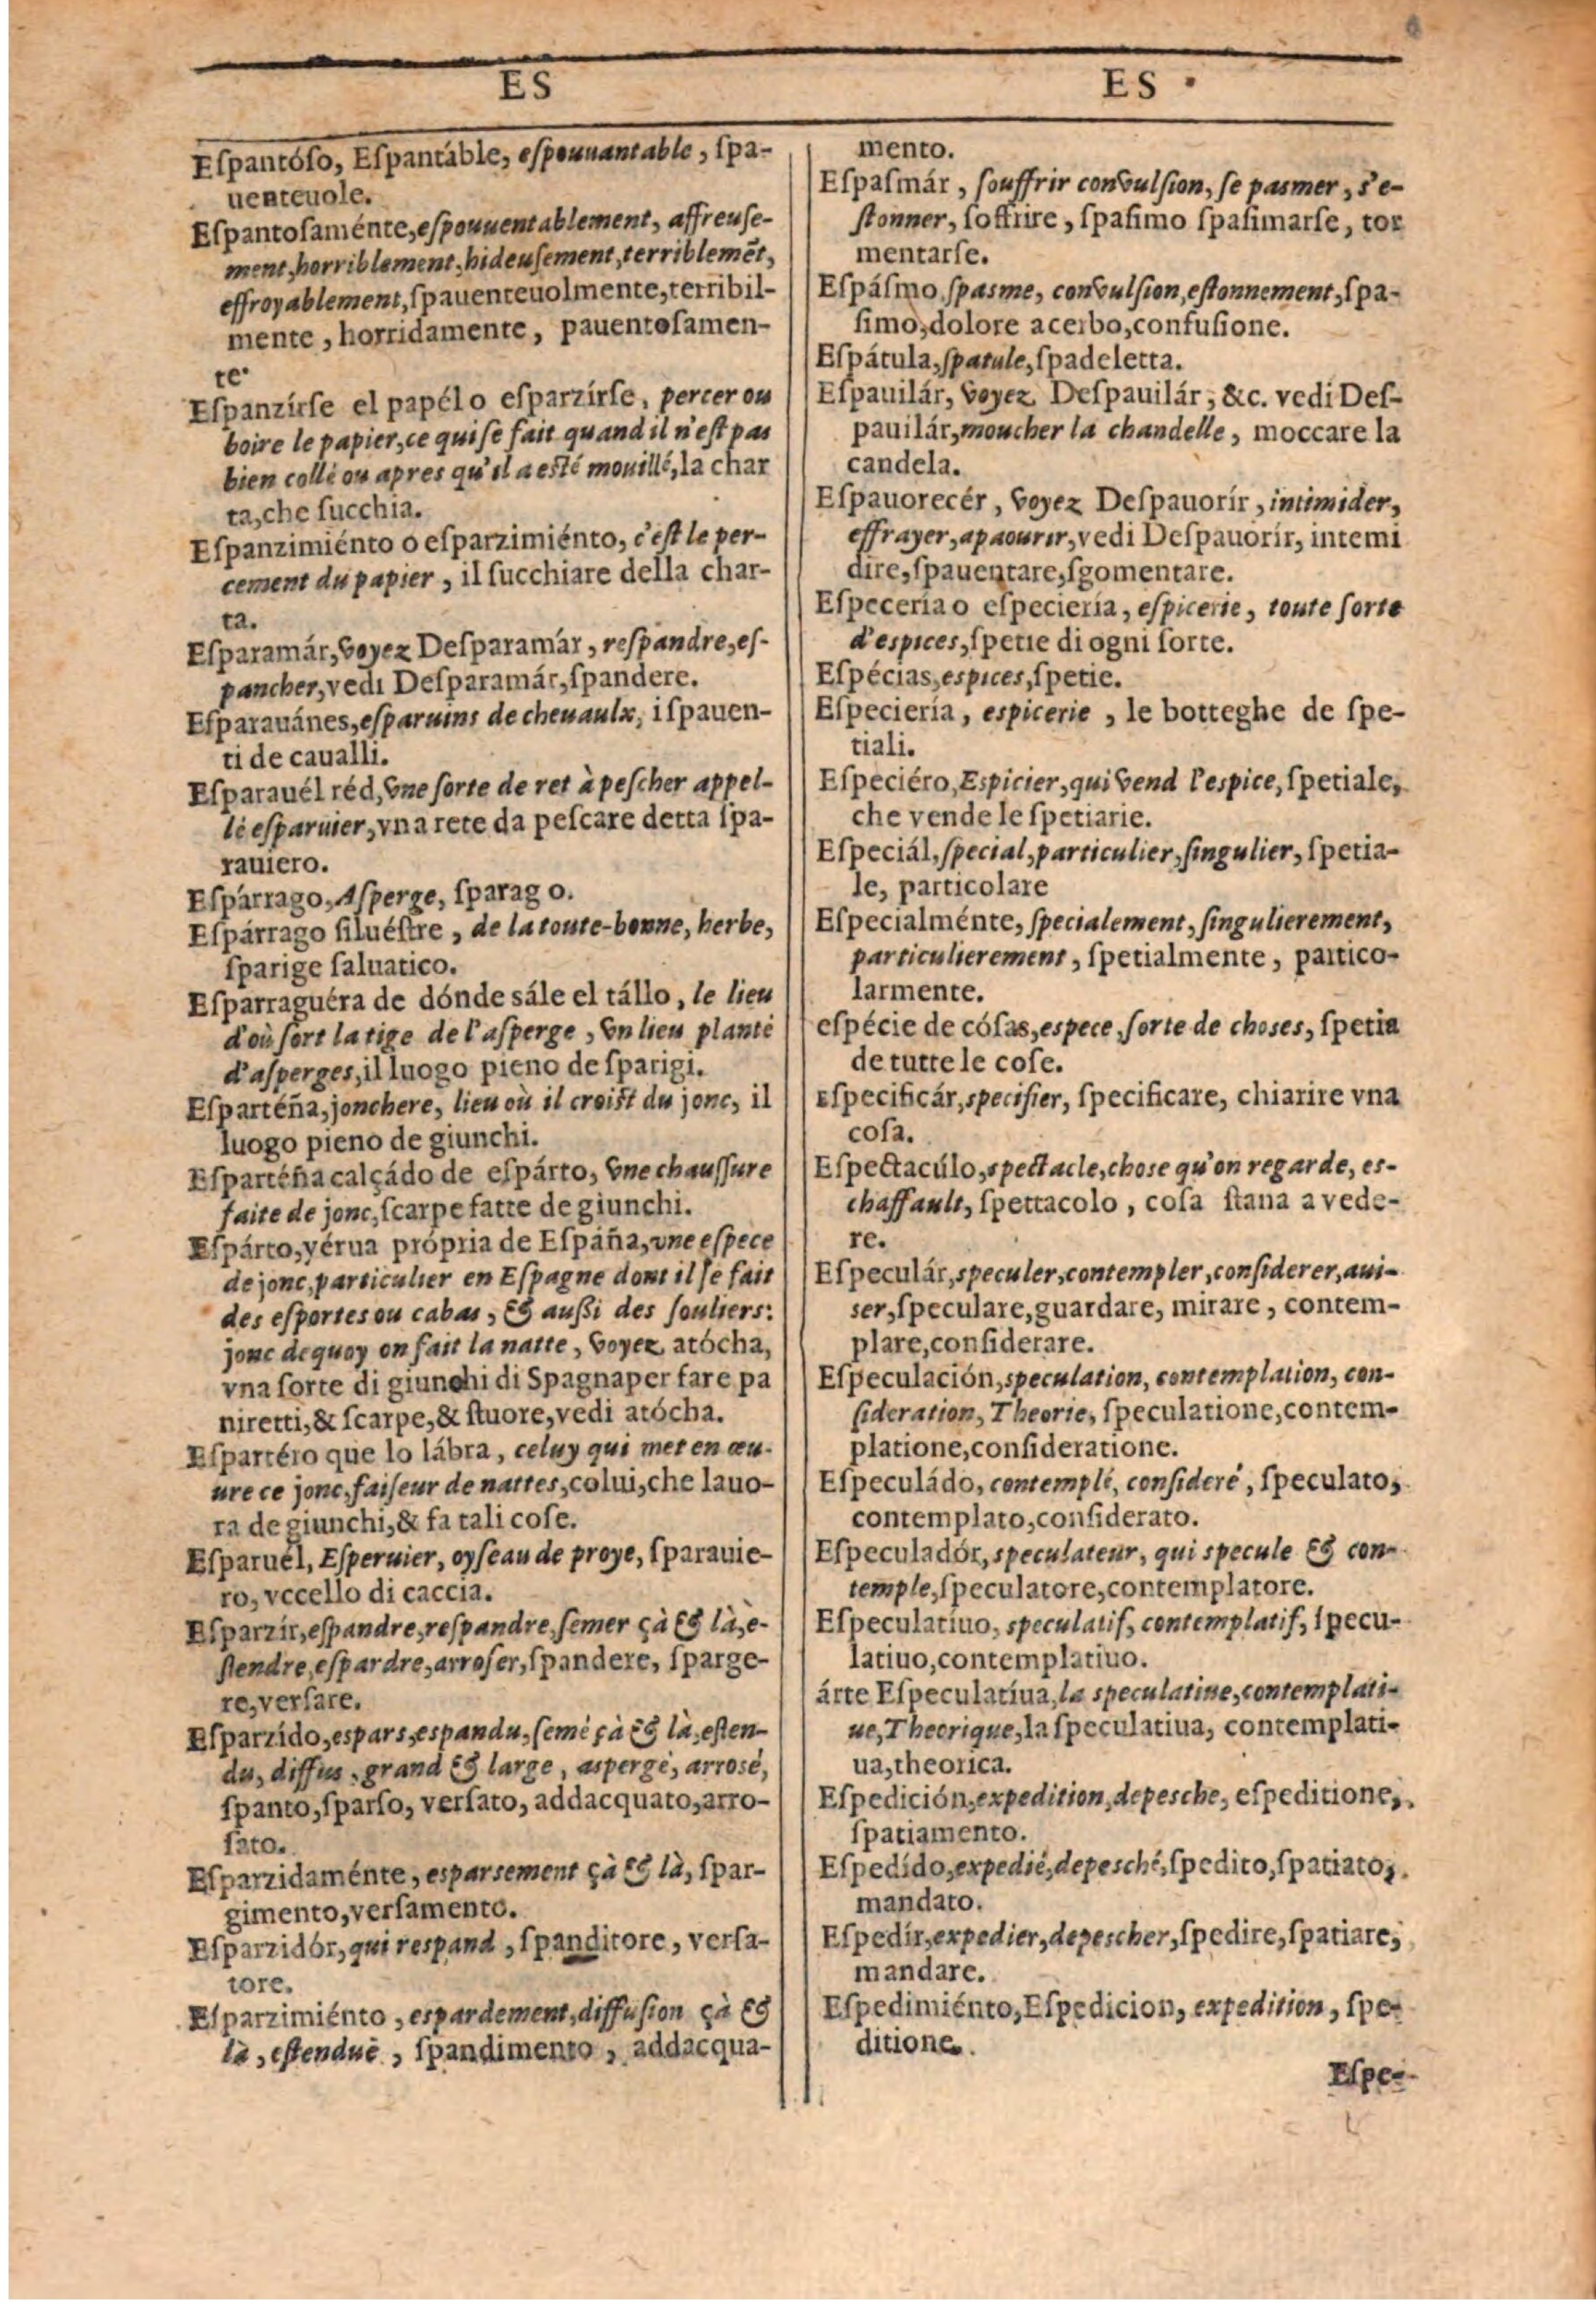 ES
Eſpantóſo, Eſpantáble, eſpouuantable, ſpa-
uenteuole.
Eſpantoſaménte, eſpouuentablement, affreuſe-
ment, horriblement, hideuſement, terriblemēt,
effroyablement, ſpauenteuolmente, terribil-
mente, horridamente, pauentoſamen-
te.
Eſpanzírſe el papél o eſparzírſe, percer ou
boire le papier, ce qui ſe fait quand il n'eſt pas
bien collé ou apres qu'il a eſté mouillé, la char
ta, che ſucchia.
Eſpanzimiénto o eſparzimiénto, c'eſt le per-
cement du papier, il ſucchiare della char-
ta.
Eſparamár, voyez Deſparamár, reſpandre, eſ-
pancher, vedi Deſparamár, ſpandere.
Eſparauánes, eſparuins de cheuaulx, i ſpauen-
ti de caualli.
Eſparauél réd, vne ſorte de ret à peſcher appel-
lé eſparuier, vna rete da peſcare detta ſpa-
rauiero.
Eſpárrago, Aſperge, ſparago.
Eſpárrago ſiluéſtre, de la toute-bonne, herbe,
ſparige ſaluatico.
Eſparraguéra de dónde sále el tállo, le lieu
d'où ſort la tige de l'aſperge, vn lieu planté
d'aſperges, il luogo pieno de ſparigi.
Eſpartéña, jonchere, lieu où il croiſt du jonc, il
luogo pieno de giunchi.
Eſpartéña calçádo de eſpárto, vne chauſſure
faite de jonc, ſcarpe fatte de giunchi.
Eſpárto, yérua própria de Eſpáña, vne eſpece
de jonc, particulier en Eſpagne dont il ſe fait
des eſportes ou cabas, & auſſi des ſouliers:
jonc dequoy on fait la natte, voyez atócha,
vna ſorte di giunchi di Spagna per fare pa
niretti, & ſcarpe, & ſtuore, vedi atócha.
Eſpartéro que lo lábra, celuy qui met en œu-
ure ce jonc, faiſeur de nattes, colui, che lauo-
ra de giunchi, & fa tali coſe.
Eſparuél, Eſperuier, oyſeau de proye, ſparauie-
ro, vccello di caccia.
Eſparzír, eſpandre, reſpandre, ſemer çà & là, e-
ſtendre, eſpardre, arroſer, ſpandere, ſparge-
re, verſare.
Eſparzído, espars, espandu, ſemé çà & là, eſten-
du, diffus, grand & large, aspergé, arrosé,
ſpanto, ſparſo, verſato, addacquato, arro-
ſato.
Eſparzidaménte, esparsement çà & là, ſpar-
gimento, verſamento.
Eſparzidór, qui respand, ſpanditore, verſa-
tore.
Eſparzimiénto, espardement, diffuſion çà &
là, eſtenduë, ſpandimento, addacqua-
ES
mento.
Eſpaſmár, ſouffrir convulſion, ſe pasmer, s'e-
ſtonner, ſoffrire, ſpaſimo ſpaſimarſe, tor
mentarſe.
Eſpáſmo, ſpasme, convulſion, eſtonnement, ſpa-
ſimo, dolore acerbo, confuſione.
Eſpátula, ſpatule, ſpadeletta.
Eſpauilár, voyez Deſpauilár, &c. vedi Deſ-
pauilár, moucher la chandelle, moccare la
candela.
Eſpauorecér, voyez Deſpauorír, intimider,
effrayer, apaourir, vedi Deſpauorír, intemi
dire, ſpauentare, ſgomentare.
Eſpecería o eſpeciería, eſpicerie, toute ſorte
d'eſpices, ſpetie di ogni ſorte.
Eſpécias, espices, ſpetie.
Eſpeciería, eſpicerie, le botteghe de ſpe-
tiali.
Eſpeciéro, Espicier, qui vend l'eſpice, ſpetiale,
che vende le ſpetiarie.
Eſpeciál, ſpecial, particulier, ſingulier, ſpetia-
le, particolare
Eſpecialménte, ſpecialement, ſingulierement,
particulierement, ſpetialmente, partico-
larmente.
eſpécie de cóſas, espece, ſorte de choses, ſpetia
de tutte le coſe.
Eſpecificár, specifier, ſpecificare, chiarire vna
coſa.
Eſpectacúlo, spectacle, chose qu'on regarde, es-
chaffault, ſpettacolo, coſa ſtana a vede-
re.
Eſpeculár, speculer, contempler, conſiderer, aui-
ser, ſpeculare, guardare, mirare, contem-
plare, conſiderare.
Eſpeculación, speculation, contemplation, con-
ſideration, Theorie, ſpeculatione, contem-
platione, conſideratione.
Eſpeculádo, contemplé, conſideré, ſpeculato,
contemplato, conſiderato.
Eſpeculadór, speculateur, qui specule & con-
temple, ſpeculatore, contemplatore.
Eſpeculatíuo, speculatif, contemplatif, ſpecu-
latiuo, contemplatiuo.
árte Eſpeculatíua, la speculatiue, contemplati-
ue, Theorique, la ſpeculatiua, contemplati-
ua, theorica.
Eſpedición, expedition, depesche, eſpeditione,
ſpatiamento.
Eſpedído, expedié, depesché, ſpedito, ſpatiato,
mandato.
Eſpedír, expedier, depescher, ſpedire, ſpatiare,
mandare.
Eſpedimiénto, Eſpedicion, expedition, ſpe-
ditione.
Eſpe-